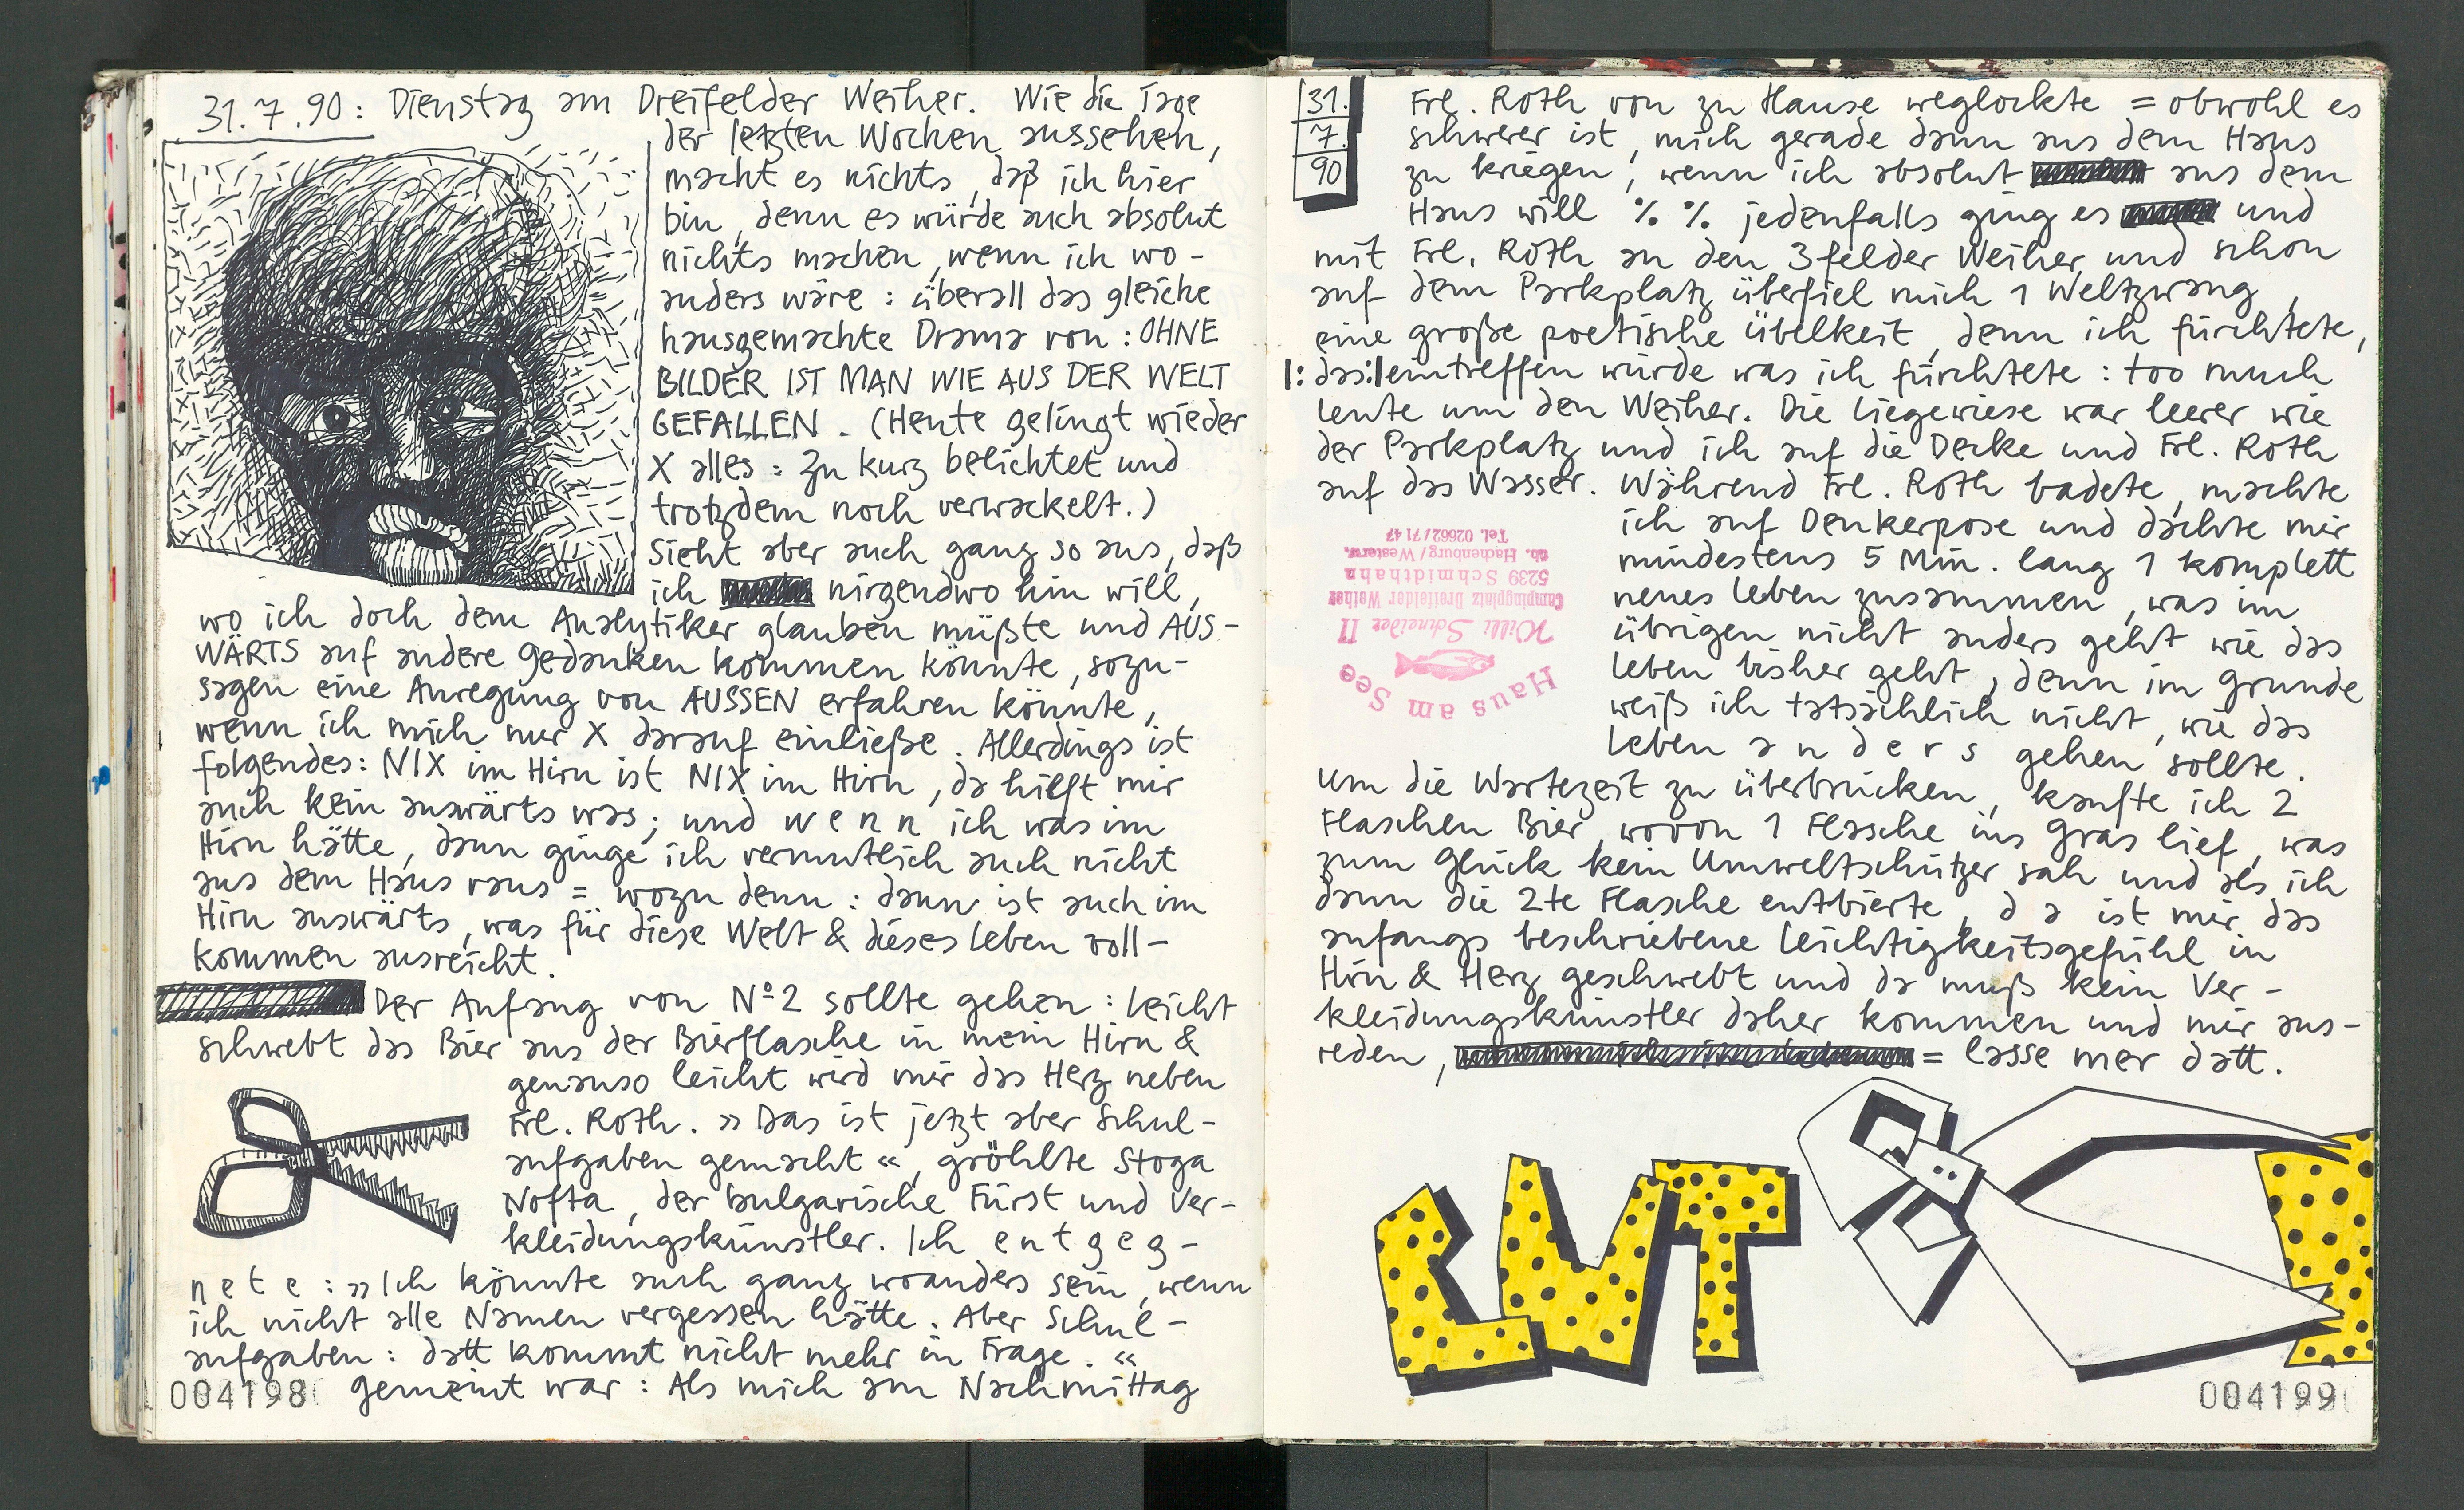 31.7.90: Dienstag am Dreifelder Weiher. Wie die Tage
der letzten Wochen aussehen,
macht es nichts, daß ich hier
bin, denn es würde auch absolut
nichts machen, wenn ich wo-
anders wäre: überall das gleiche
hausgemachte Drama von: OHNE
BILDER IST MAN WIE AUS DER WELT
GEFALLEN. (Heute gelingt wieder
X alles: Zu kurz belichtet und
trotzdem noch verwackelt.)
Sieht aber auch ganz so aus, daß
ich nirgendwo hin will,
wo ich doch dem Analytiker glauben müßte und AUS-
WÄRTS auf andere Gedanken kommen könnte, sozu-
sagen eine Anregung von AUSSEN erfahren könnte,
wenn ich mich nur X darauf einließe. Allerdings ist
folgendes: NIX im Hirn ist NIX im Hirn, da hilft mir
auch kein auswärts was; und w e n n ich was im
Hirn hätte, dann ginge ich vermutlich auch nicht
aus dem Haus raus = wozu denn: dann ist auch im
Hirn auswärts, was für diese Welt & dieses Leben voll-
kommen ausreicht.
Der Anfang von Nº2 sollte gehen: Leicht
schwebt das Bier aus der Bierflasche in mein Hirn &
genauso leicht wird mir das Herz neben
Frl. Roth. »Das ist jetzt aber Schul-
aufgaben gemacht«, gröhlte Stoga
Nofta, der bulgarische Fürst und Ver-
kleidungskünstler. Ich e n t g e g -
n e t e : »Ich könnte auch ganz woanders sein, wenn
ich nicht alle Namen vergessen hätte. Aber Schul-
aufgaben: datt kommt nicht mehr in Frage.«
gemeint war: Als mich am Nachmittag
004198
31.
7.
90
Frl. Roth von zu Hause weglockte = obwohl es
schwerer ist, mich gerade dann aus dem Haus
zu kriegen, wenn ich absolut aus dem
Haus will % % jedenfalls ging es und
mit Frl. Roth an den 3felder Weiher und schon
auf dem Parkplatz überfiel mich 1 Weltzwang,
eine große poetische Übelkeit, denn ich fürchtete,
|: das :| eintreffen würde was ich fürchtete: too much
Leute um den Weiher. Die Liegewiese war leerer wie
der Parkplatz und ich auf die Decke und Frl. Roth
auf das Wasser. Während Frl. Roth badete, machte
ich auf Denkerpose und dachte mir
mindestens 5 Min. lang 1 komplett
neues Leben zusammen, was im
übrigen nicht anders geht wie das
Leben bisher geht, denn im Grunde
weiß ich tatsächlich nicht, wie das
Leben a n d e r s gehen sollte.
Haus am See
Willi Schneider II
Campingplatz Dreifelder Weiher
5239 Schmidthahn
üb. Hachenburg/Westerw.
Tel. 02662/7147
Um die Wartezeit zu überbrücken, kaufte ich 2
Flaschen Bier, wovon 1 Flasche ins Gras lief, was
zum Glück kein Umweltschützer sah und als ich
dann die 2te Flasche entbierte, d a ist mir das
anfangs beschriebene Leichtigkeitsgefühl in
Hirn & Herz geschwebt und da muß kein Ver-
kleidungskünstler daher kommen und mir aus-
reden, = lasse mer datt.
CUT
004199